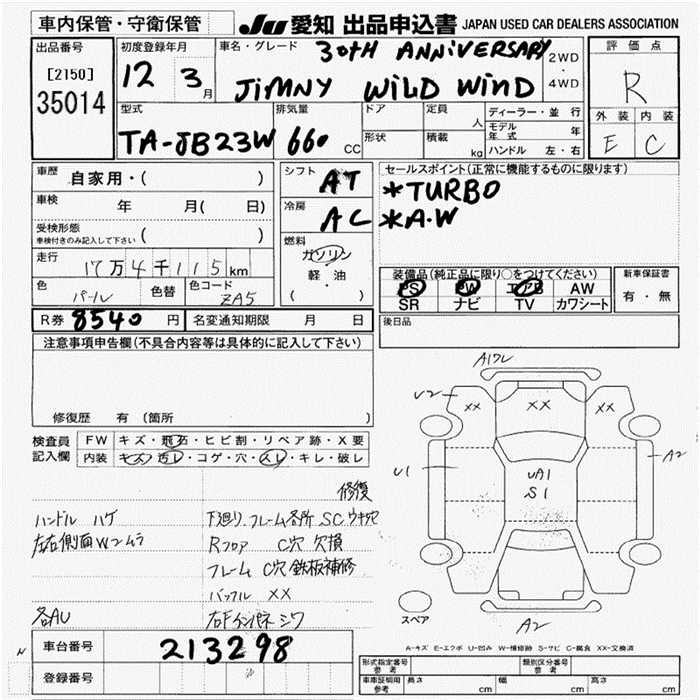 車内保管・守衛保管
JU 愛知 出品申込書 JAPAN USED CAR DEALERS ASSOCIATION
出品番号
[2150]
35014
初度登録年月
12 3月
車名・グレード
30TH ANNiVERSARY
JiMNY WiLD WinD
2WD
・
4WD
評価点
R
外装 内装
E C
型式
TA-JB23W
排気量
660 CC
ドア
形状
定員 人
積載 kg
ディーラー・並行
モデル年式 年
ハンドル 左・右
車歴
自家用・( )
車検 年 月( 日)
受検形態
車検付きのみ記入して下さい ( )
走行
17万4千115km
色 パール 色替 色コード ZA5
シフト AT
冷房 AC
燃料
ガソリン
軽油
( ・ )
セールスポイント(正常に機能するものに限ります)
*TURBO
*A.W
装備品(純正品に限り○をつけてください)
PS PW エアB AW
SR ナビ TV カワシート
新車保証書
有・無
R券 8540 円 名変通知期限 月 日
後日品
注意事項申告欄(不具合内容等は具体的に記入して下さい)
修復歴 有(箇所 )
検査員記入欄
FW キズ・飛石・ヒビ割・リペア跡・X要
内装 キズ・汚レ・コゲ・穴・スレ・キレ・破レ
修復
ハンドル ハゲ
左右側面Wニムラ
各AU
下廻り.フレーム各所 SC ウキサビ
Rフロア C穴 欠損
フレーム C穴 鉄板補修
バッフル XX
右Fインパネ シワ
A17レ
U2
XX XX XX
U1
UA1
S1
A2
スペア
A2
A-キズ E-エクボ U-凹み W-補修跡 S-サビ C-腐食 XX-交換済
N
車台番号 213298
登録番号
形式指定番号 参考
類別区分番号 参考
車庫証明用 参考 長さ cm 幅 cm 高さ cm